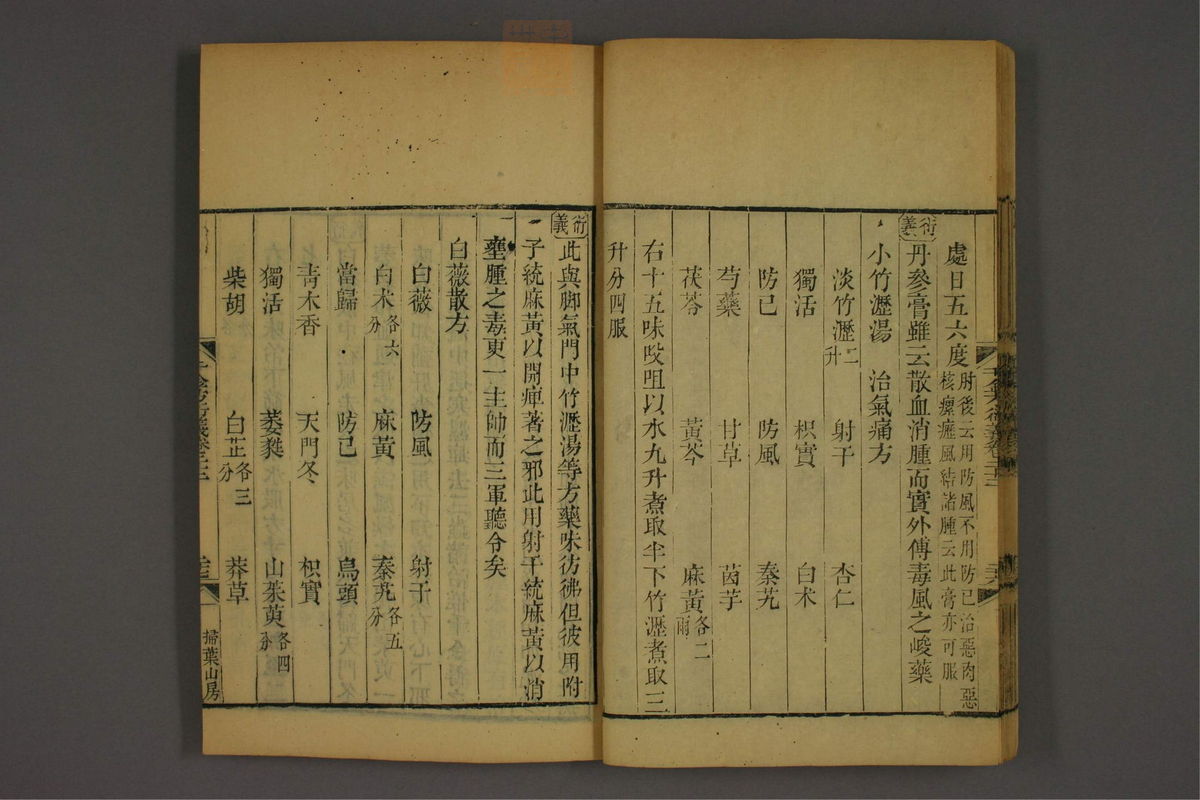 處日五六度肘後云用防風不用防已治惡肉惡
核瘰癧風結諸腫云此膏亦可服
衍義丹參膏雖云散血消腫而實外傅毒風之峻藥
小竹瀝湯 治氣痛方
淡竹瀝二升 射干 杏仁
獨活 枳實 白术
防已 防風 秦艽
芍藥 甘草 茵芋
茯苓 黃芩 麻黃各二兩
右十五味㕮咀以水九升煮取半下竹瀝煮取三
升分四服
衍義此與脚氣門中竹瀝湯等方藥味彷彿但彼用附
子統麻黃以開痺著之邪此用射干統麻黃以消
壅腫之毒更一主帥而三軍聽令矣
白薇散方
白薇 防風 射干
白术各六分 麻黃 秦艽各五分
當歸 防已 烏頭
青木香 天門冬 枳實
獨活 萎蕤 山茱萸各四分
柴胡 白芷各三分 莽草
掃葉山房